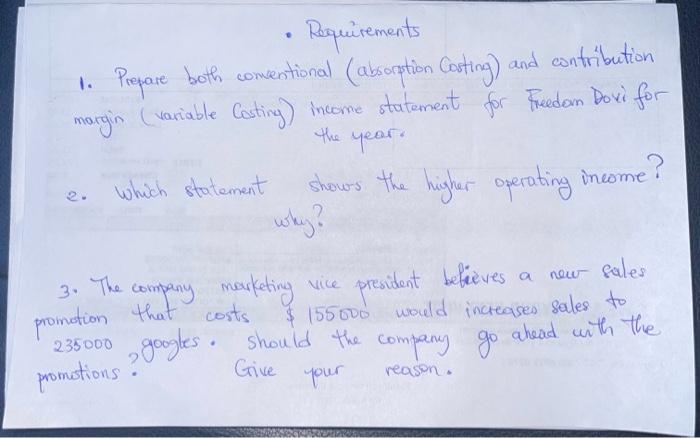 • Requirements
1. Prepare both conventional (absorption Costing) and contribution
margin (variable Costing) income statement for Freedom Dovi for
the year.
2. Which statement shows the higher operating income?
why?
3. The company marketing vice president believes a new sales
promotion that costs $ 155000 would increases sales to
235000 googles. should the company go ahead with the
promotions? Give your reason.